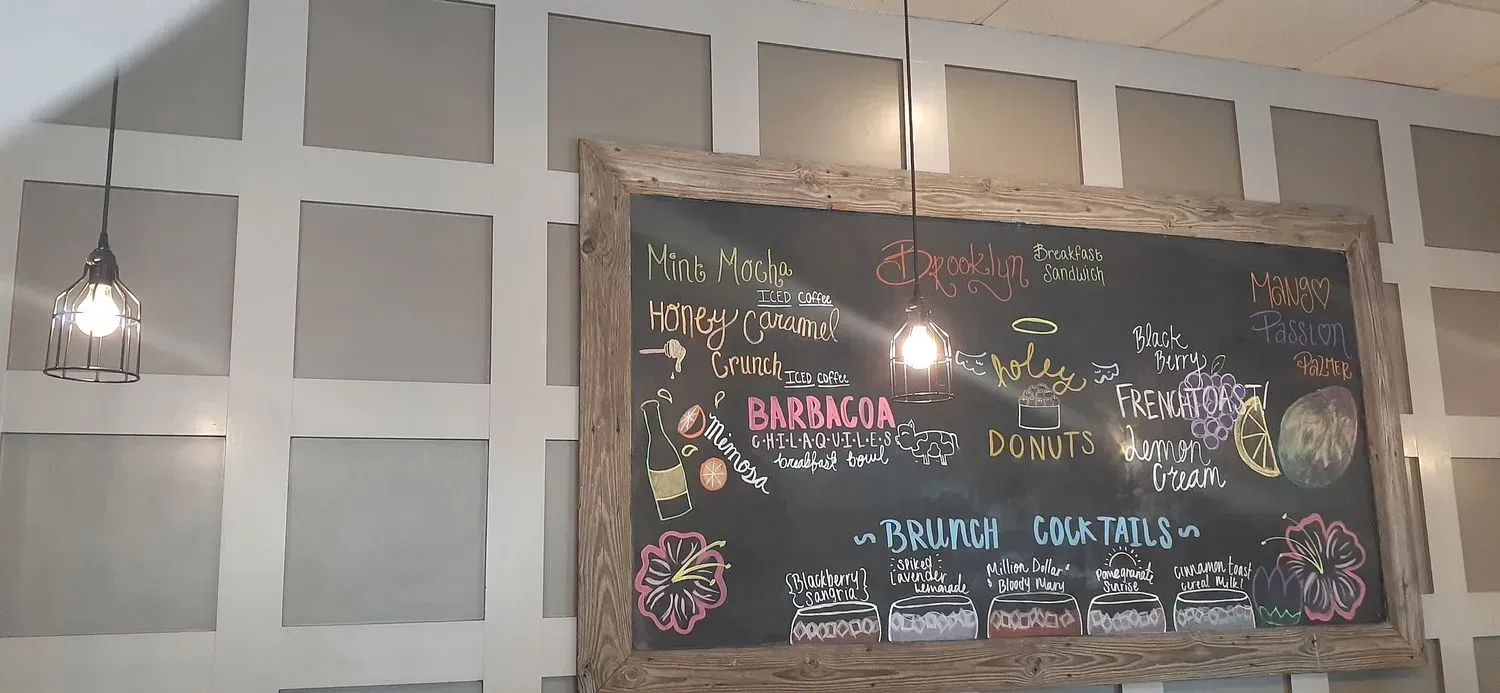 Mint Mocha
ICED Coffee
Honey Caramel
Crunch
ICED Coffee
BARBACOA
CHILAQUILES
breakfast bowl
Mimosa
Brooklyn
Breakfast
Sandwich
holey
DONUTS
Black
Berry
FRENCHTOAST
Lemon
Cream
Mango
Passion
PALMER
~BRUNCH COCKTAILS~
{Blackberry
Sangria}
Spiked
Lavender
Lemonade
Million Dollar
Bloody Mary
Pomegranate
Sunrise
Cinnamon toast
Cereal Milk!